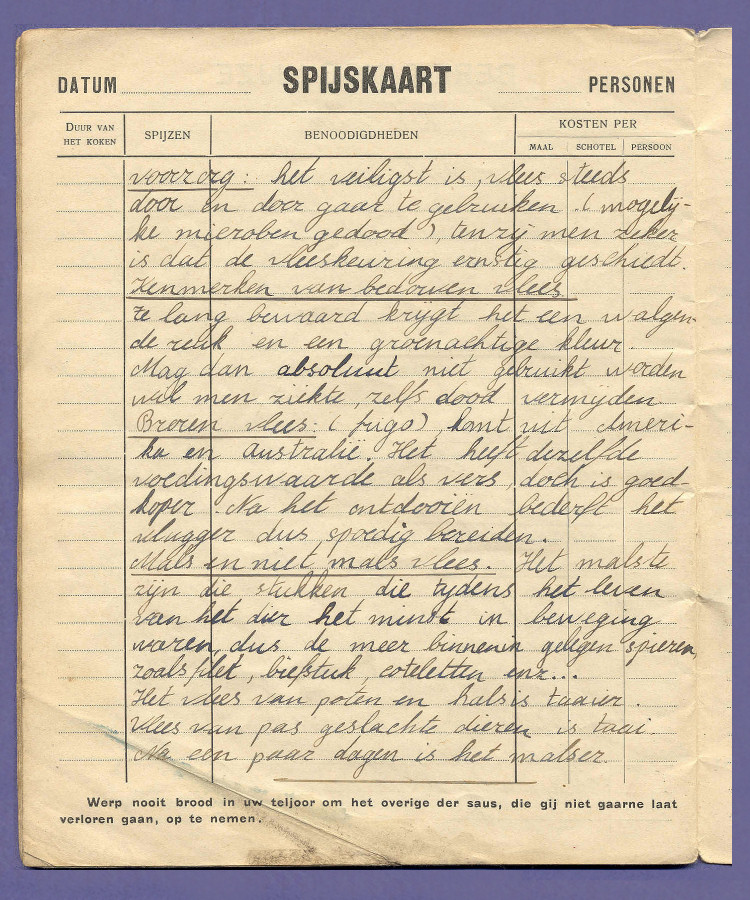 DATUM SPIJSKAART PERSONEN
DUUR VAN HET KOKEN SPIJZEN BENOODIGDHEDEN KOSTEN PER
MAAL SCHOTEL PERSOON
voorzorg: het veiligst is, vlees steeds
door en door gaar te gebruiken (mogelij-
ke microben gedood), tenzij men zeker
is dat de vleeskeuring ernstig geschiedt.
Kenmerken van bedorven vlees
te lang bewaard krijgt het een walgen-
de reuk en een groenachtige kleur.
Mag dan absoluut niet gebruikt worden
wil men ziekte, zelfs dood vermijden.
Brozen vlees: (frigo), komt uit Ameri-
ka en Australië. Het heeft dezelfde
voedingswaarde als vers, doch is goed-
koper. Na het ontdooiën bederft het
vlugger dus spoedig bereiden.
Mals en niet mals vlees. Het malste
zijn die stukken die tijdens het leven
van het dier het minst in beweging
waren, dus de meer binnenin gelegen spieren,
zoals filet, biefstuk, coteletten enz...
Het vlees van poten en hals is taaier.
Vlees van pas geslachte dieren is taai.
Na een paar dagen is het malser.
Werp nooit brood in uw teljoor om het overige der saus, die gij niet gaarne laat
verloren gaan, op te nemen.